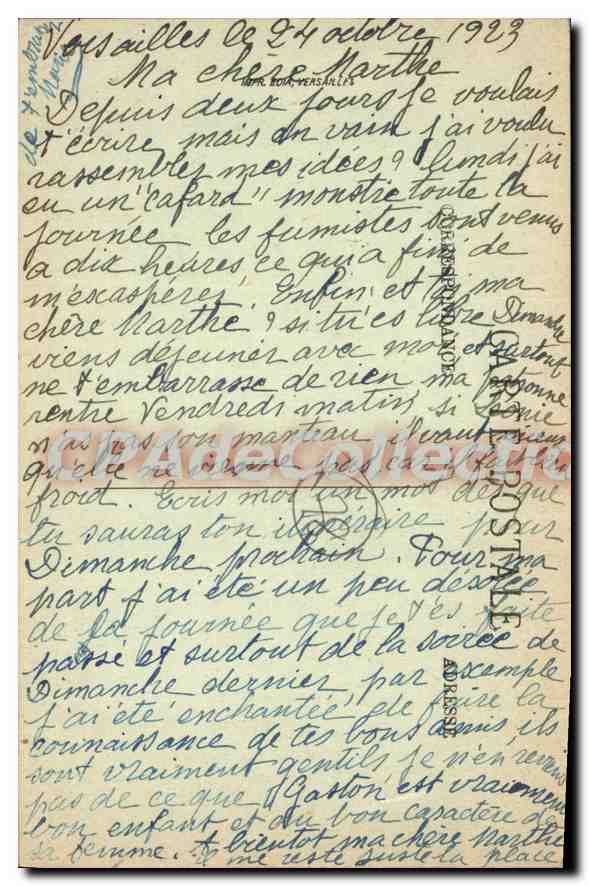 Versailles le 24 octobre 1923
Ma chère Marthe
IMPR. BOIA, VERSAILLES
Depuis deux jours je voulais
t'écrire, mais en vain j'ai voulu
rassembler mes idées ? lundi j'ai
eu un "cafard" monstre toute la
journée les fumistes sont venus
a dix heures ce qui a fini de
m'exaspérer. Enfin, et toi ma
chère Marthe ? si tu es libre Dimanche
viens déjeuner avec moi et surtout
ne t'embarrasse de rien ma patronne
rentre Vendredi matin, si
n'a pas son manteau il vaut mieux
qu'elle ne vienne pas car il fait
froid. Ecris moi un mot dès que
tu sauras ton itinéraire pour
Dimanche prochain. Pour ma
part j'ai été un peu désolée
de la journée que je t'ai faite
passé et surtout de la soirée de
Dimanche dernier, par exemple
j'ai été enchantée de faire la
connaissance de tes bons amis, ils
sont vraiment gentils je n'en reviens
pas de ce que "Gaston" est vraiment
bon enfant et du bon caractère de
sa femme. A bientôt ma chère Marthe
Il me reste juste la place
de t'embrasser
CARTE POSTALE
CORRESPONDANCE
ADRESSE
CPADeCollection